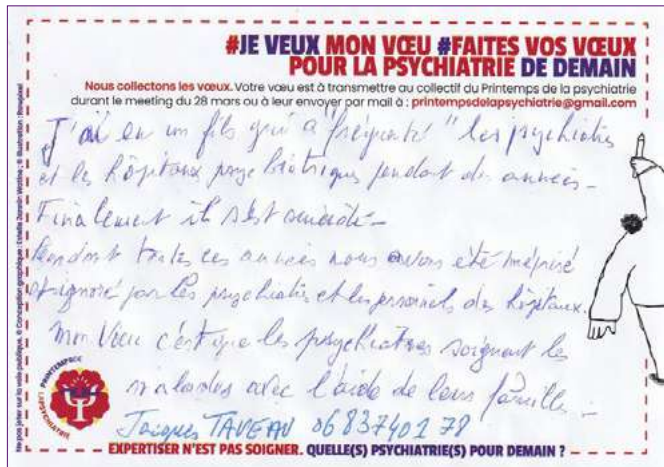 #JE VEUX MON VŒU #FAITES VOS VŒUX
POUR LA PSYCHIATRIE DE DEMAIN
Nous collectons les vœux. Votre vœu est à transmettre au collectif du Printemps de la psychiatrie
durant le meeting du 28 mars ou à leur envoyer par mail à : printempsdelapsychiatrie@gmail.com
J'ai eu un fils qui a "fréquenté" les psychiatres
et les hôpitaux psychiatriques pendant des années -
Finalement il s'est suicidé -
Pendant toutes ces années nous avons été méprisé
et ignoré par les psychiatres et les personnels des hôpitaux.
Mon Vœu c'est que les psychiatres soignent les
malades avec l'aide de leur famille -
Jacques TAVEAU 0683740278
EXPERTISER N'EST PAS SOIGNER. QUELLE(S) PSYCHIATRIE(S) POUR DEMAIN ?
PRINTEMPS DE
LA PSYCHIATRIE
Ne pas jeter sur la voie publique. © Conception graphique :